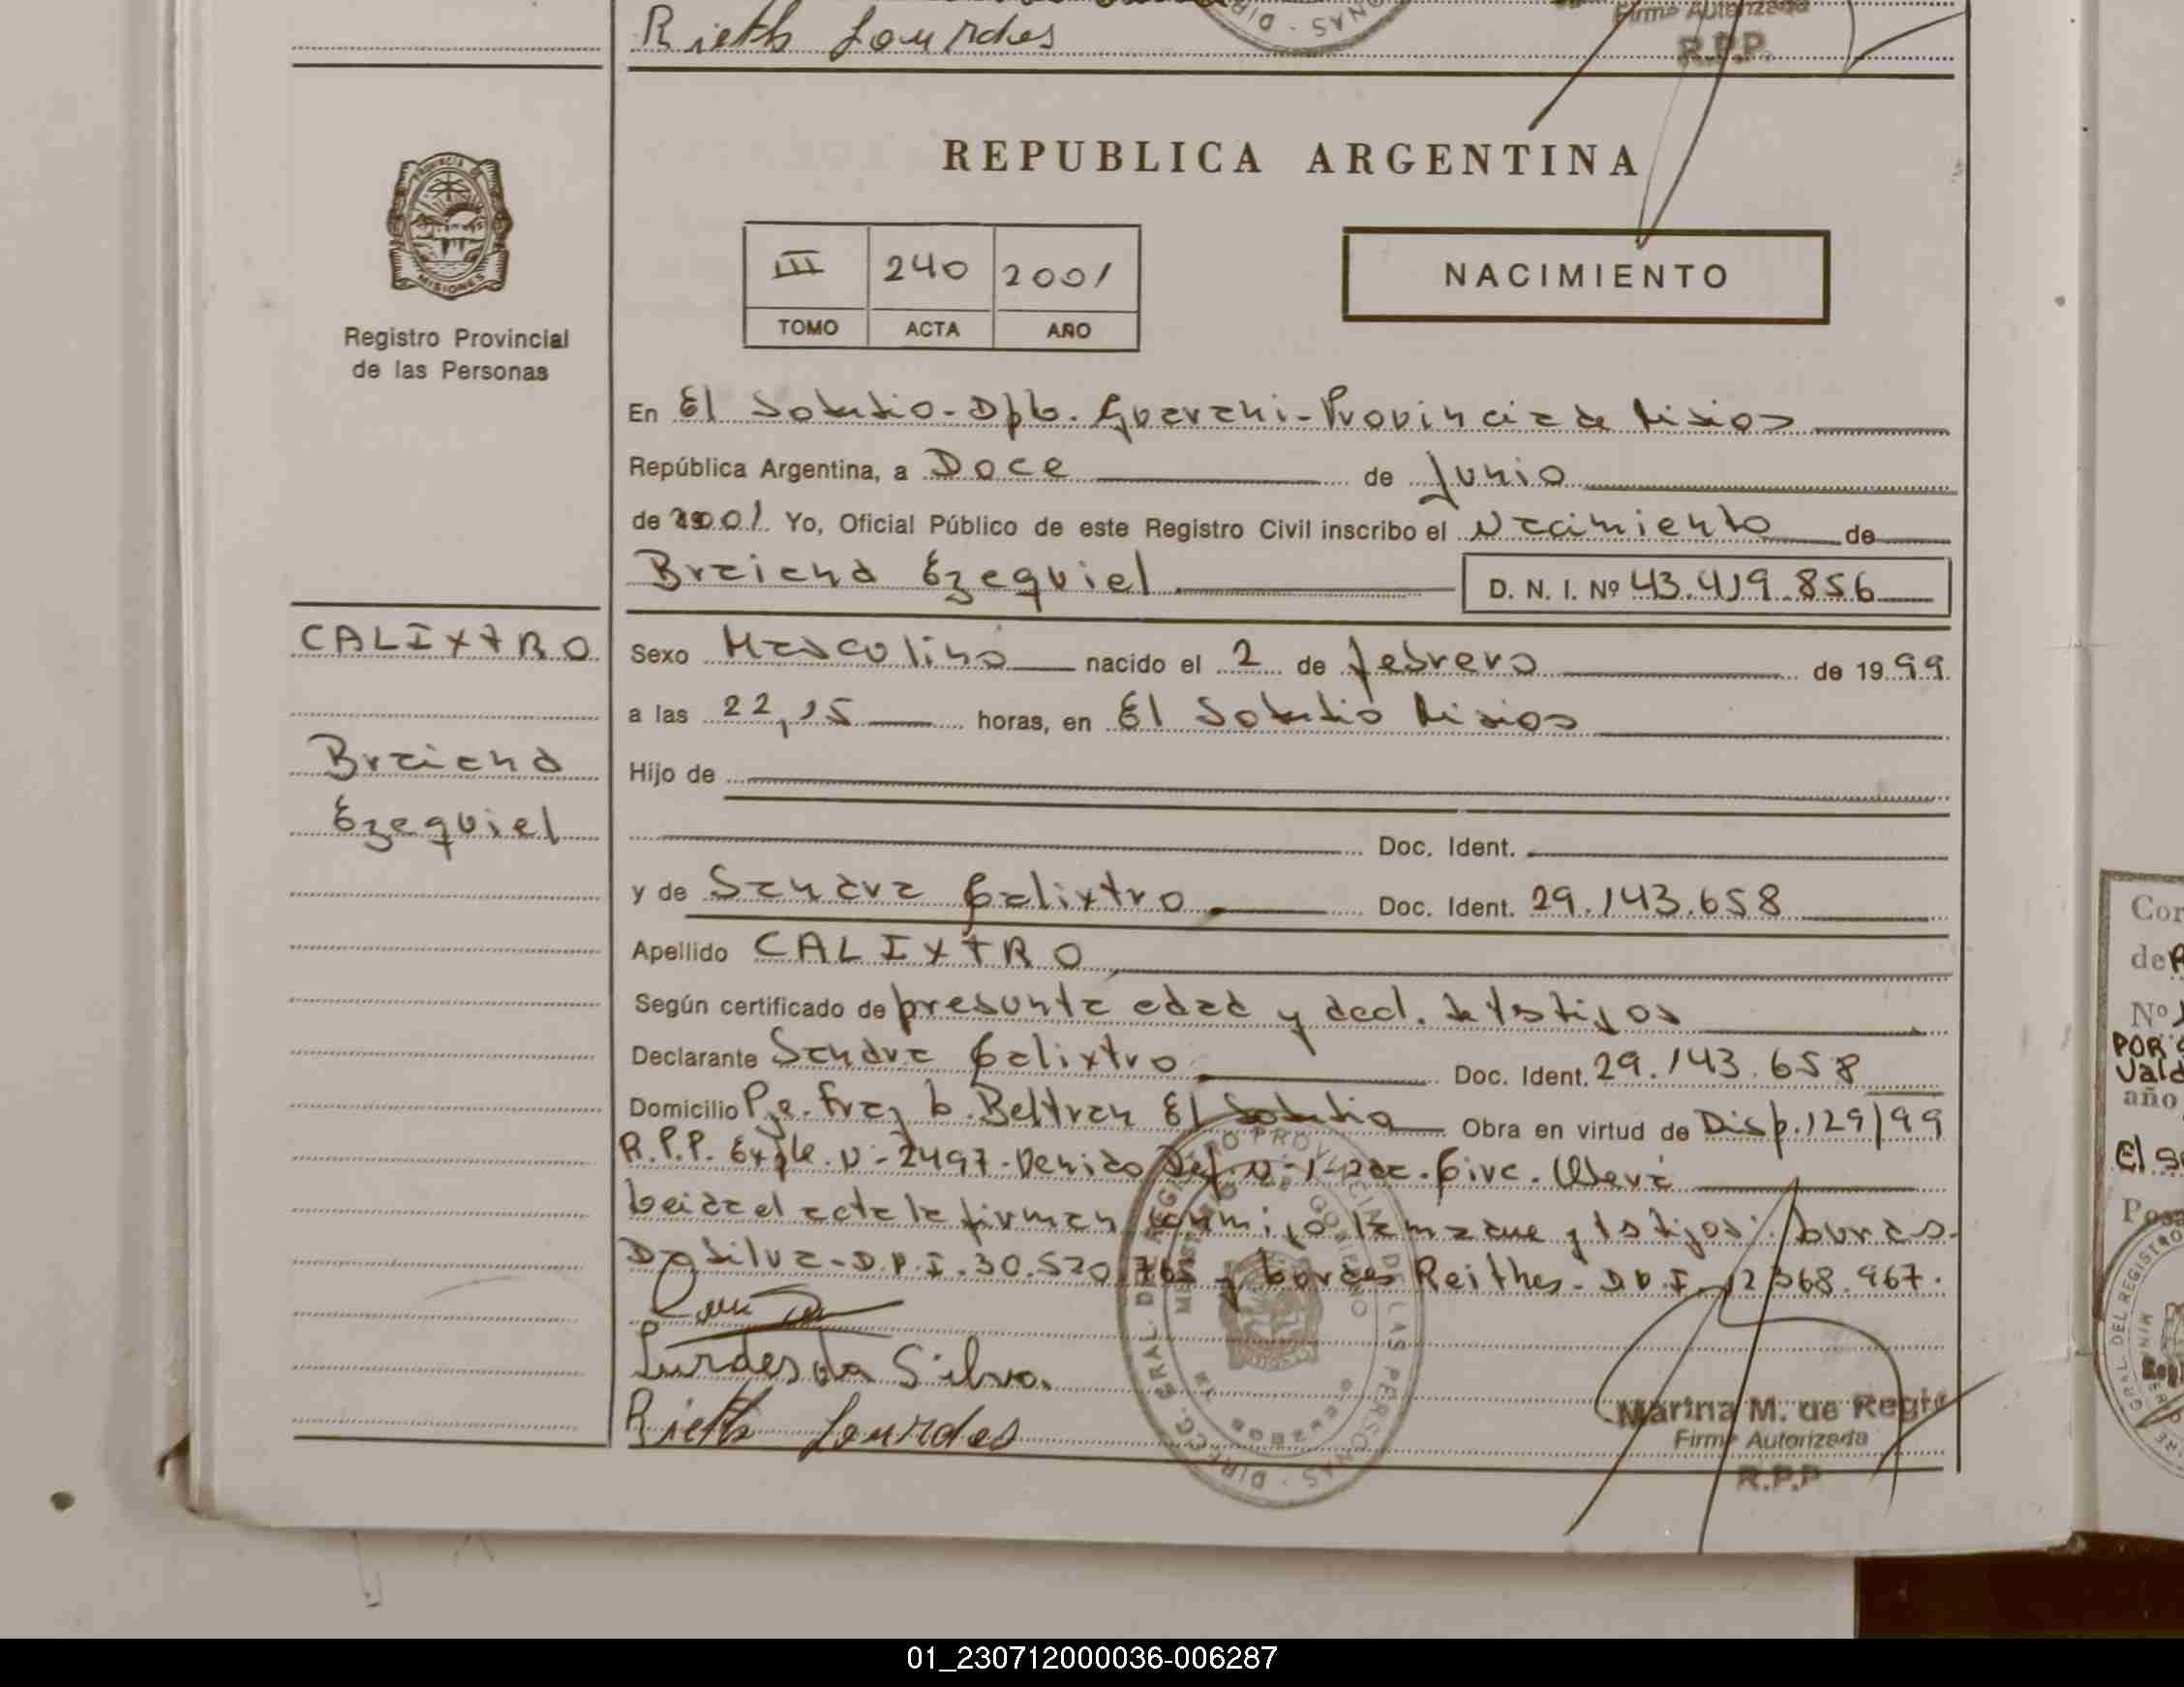 Rieth Lourdes
Firma Autorizada
R.P.P.
PROVINCIA
MISIONES
Registro Provincial
de las Personas
REPUBLICA ARGENTINA
III 240 2001
TOMO ACTA AÑO
NACIMIENTO
En El Soberbio - Dpto. Guarani - Provincia de Misiones
República Argentina, a Doce de Junio
de 2001 Yo, Oficial Público de este Registro Civil inscribo el Nacimiento de
Braiend Ezequiel D. N. I. Nº 43.419.856
CALIXTRO
Braiend
Ezequiel
Sexo Masculino nacido el 2 de febrero de 1999
a las 22,15 horas, en El Soberbio Misiones
Hijo de
Doc. Ident.
y de Sandra Calixtro Doc. Ident. 29.143.658
Apellido CALIXTRO
Según certificado de presunta edad y decl. de testigos
Declarante Sandra Calixtro Doc. Ident. 29.143.658
Domicilio Pje. Fray L. Beltran El Soberbio Obra en virtud de Disp. 129/99
R.P.P. Expte. N- 2497- Def. N-1- Civc. Oberá
Leida el acta la firman conmigo la madre y testigos:
Da Silva - D.N.I. 30.520.765 y Reithes - D.N.I. 12368.967.
Lurdes da Silva.
Rieth Lourdes
Marina M. de
Firma Autorizada
R.P.P
Cor
de
Nº
POR
Vald
año
El S
01_230712000036-006287